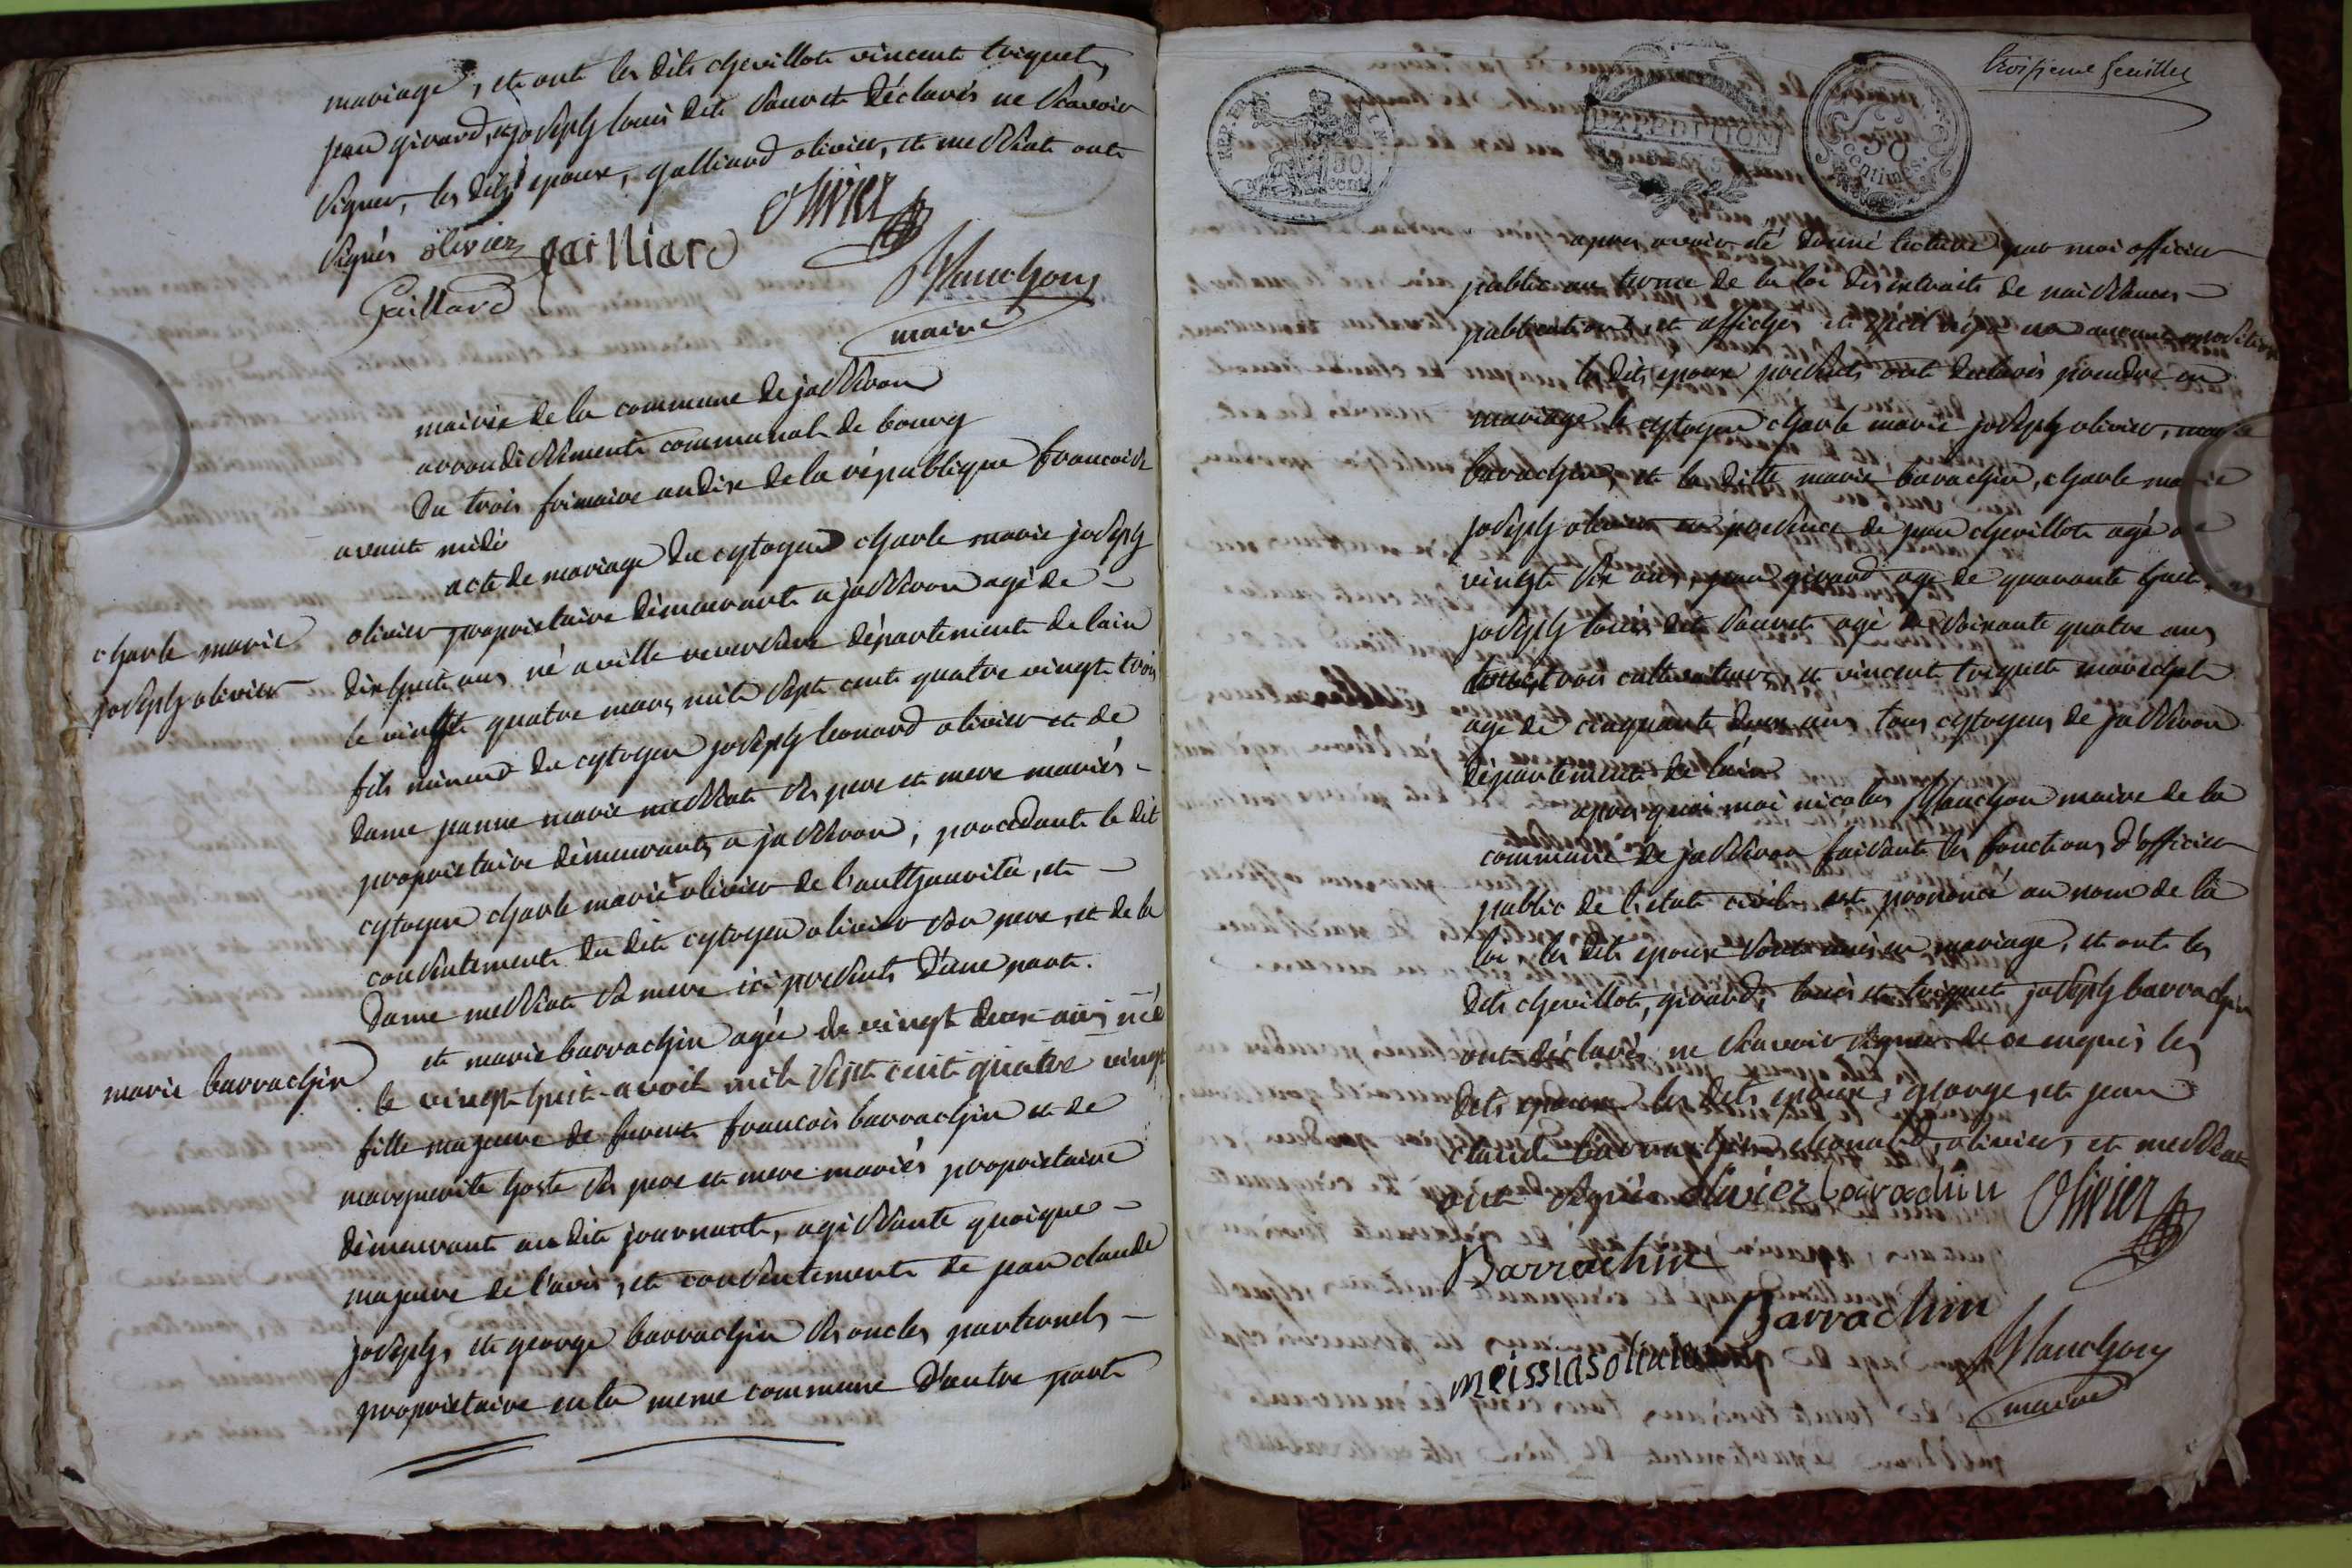 mariage, et ont les dits chevillot vincent triquet,
jean girard, et joseph louis dit Sauvet déclarés ne Scavoir
Signer, les dits epoux, galliard olivier, et messiat ont
Signés olivier gailliard olivier
Gaillard Planchon
maire
mairie de la commune de jasseron
arrondissement communal de bourg
Du trois frimaire an dix de la république francoise
avant midi
acte de mariage du cytoyen charle marie joseph
charle marie
joseph olivier
olivier proprietaire démeurant a jasseron agé de
dix huit ans né a ville reversure département de lain
le vingt quatre mars mil Sept cent quatre vingt trois
fils mineur du cytoyen joseph leonard olivier et de
dame jeanne marie messiat Ses pere et mere mariés
proprietaire démeurants a jasseron, procedant le dit
cytoyen charle marie olivier de l'authourité, et
consentement du dit cytoyen olivier Son pere, et de la
Dame messiat Sa mere ici presents d'une part.
marie barrachin
et marie barrachin agée de vingt deux ans née
le vingt huit avril mil Sept cent quatre vingt
fille majeure de furent francois barrachin et de
marguerite goste Ses pere et mere mariés proprietaire
démeurant au dit journant, agissante quoique
majeure de l'avis, et consentement de jean claude
joseph, et george barrachin Ses oncles parternels
proprietaire en la meme commune d'autre part
troisieme feuillet
REP. FRA.
50 cent
EXPEDITION
50 centimes
apres avoir été donné lecture par moi officier
public au terme de la loi des extraits de naissances
publications, et affiches et qu'il n'y a eu aucune opposition
les dits epoux presents ont declarés prendre en
mariage le cytoyen charle marie joseph olivier, marie
barachin, et la ditte marie barachin, charle marie
joseph olivier en presence de jean chevillot agé de
vingt Six ans, jean girard agé de quarante huit
joseph louis dit Sauvet agé de Soixante quatre ans
trois cultivateurs, et vincent triquet marechal
agé de cinquante deux ans tous cytoyens de jasseron
département de l'ain
apres quoi moi nicolas Planchon maire de la
commune de jasseron faisant les fonctions d'officier
public de l'etat civil ait prononcé au nom de la
loi les dits epoux Sont unis en mariage, et ont les
dits chevillot, girard, louis et triquet joseph barrachin
ont déclarés ne Scavoir Signer de ce enquis les
dits epoux les dits epoux, george, et jean
claude barrachin leonard, olivier, et messiat
ont Signés olivier barachin olivier
Barrachin
Barrachin
meissiasolivier
Planchon
maire